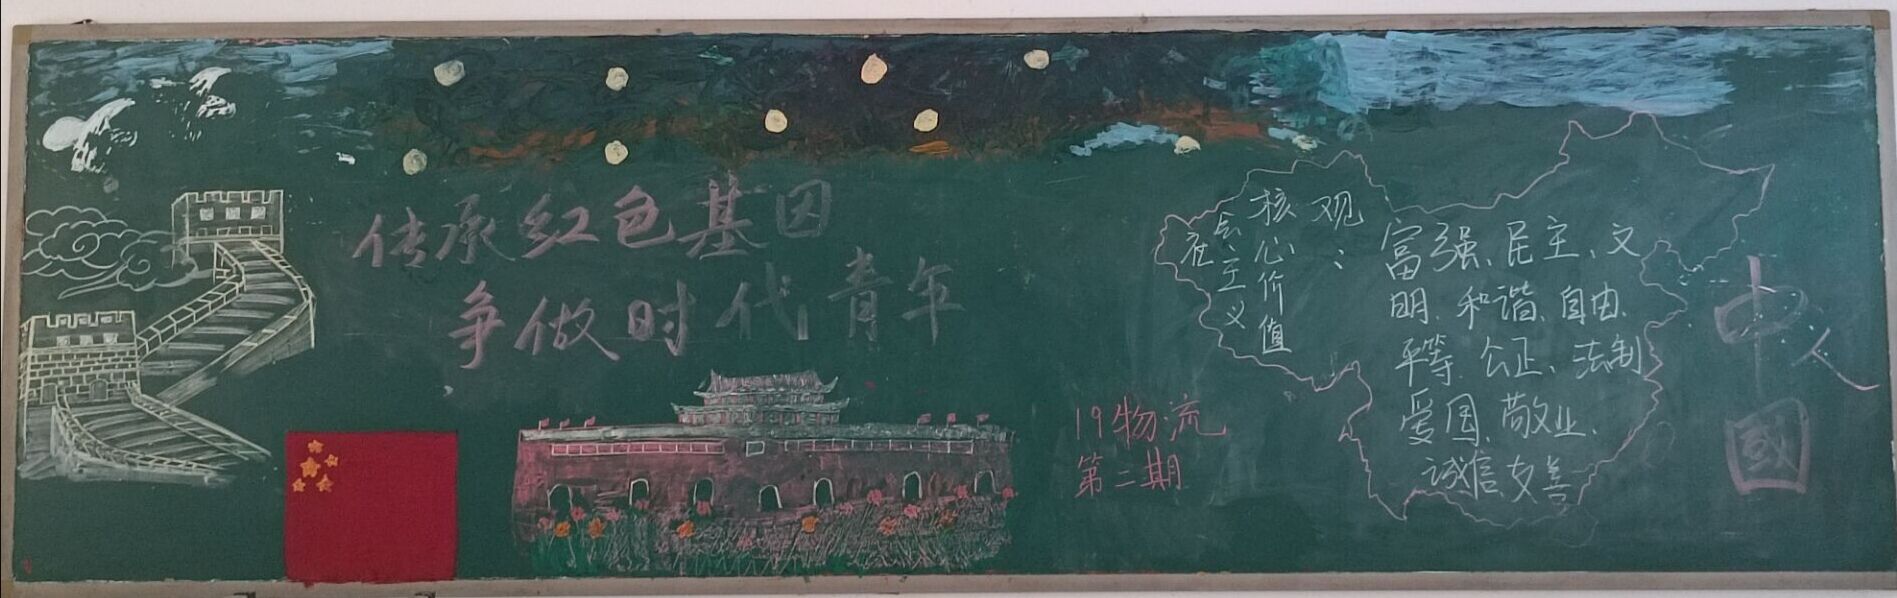 传承红色基因
争做时代青年
19物流
第二期
社会主义
核心价值
观：
富强、民主、文
明、和谐、自由、
平等、公正、法制
爱国、敬业、
诚信、友善
中
國
人